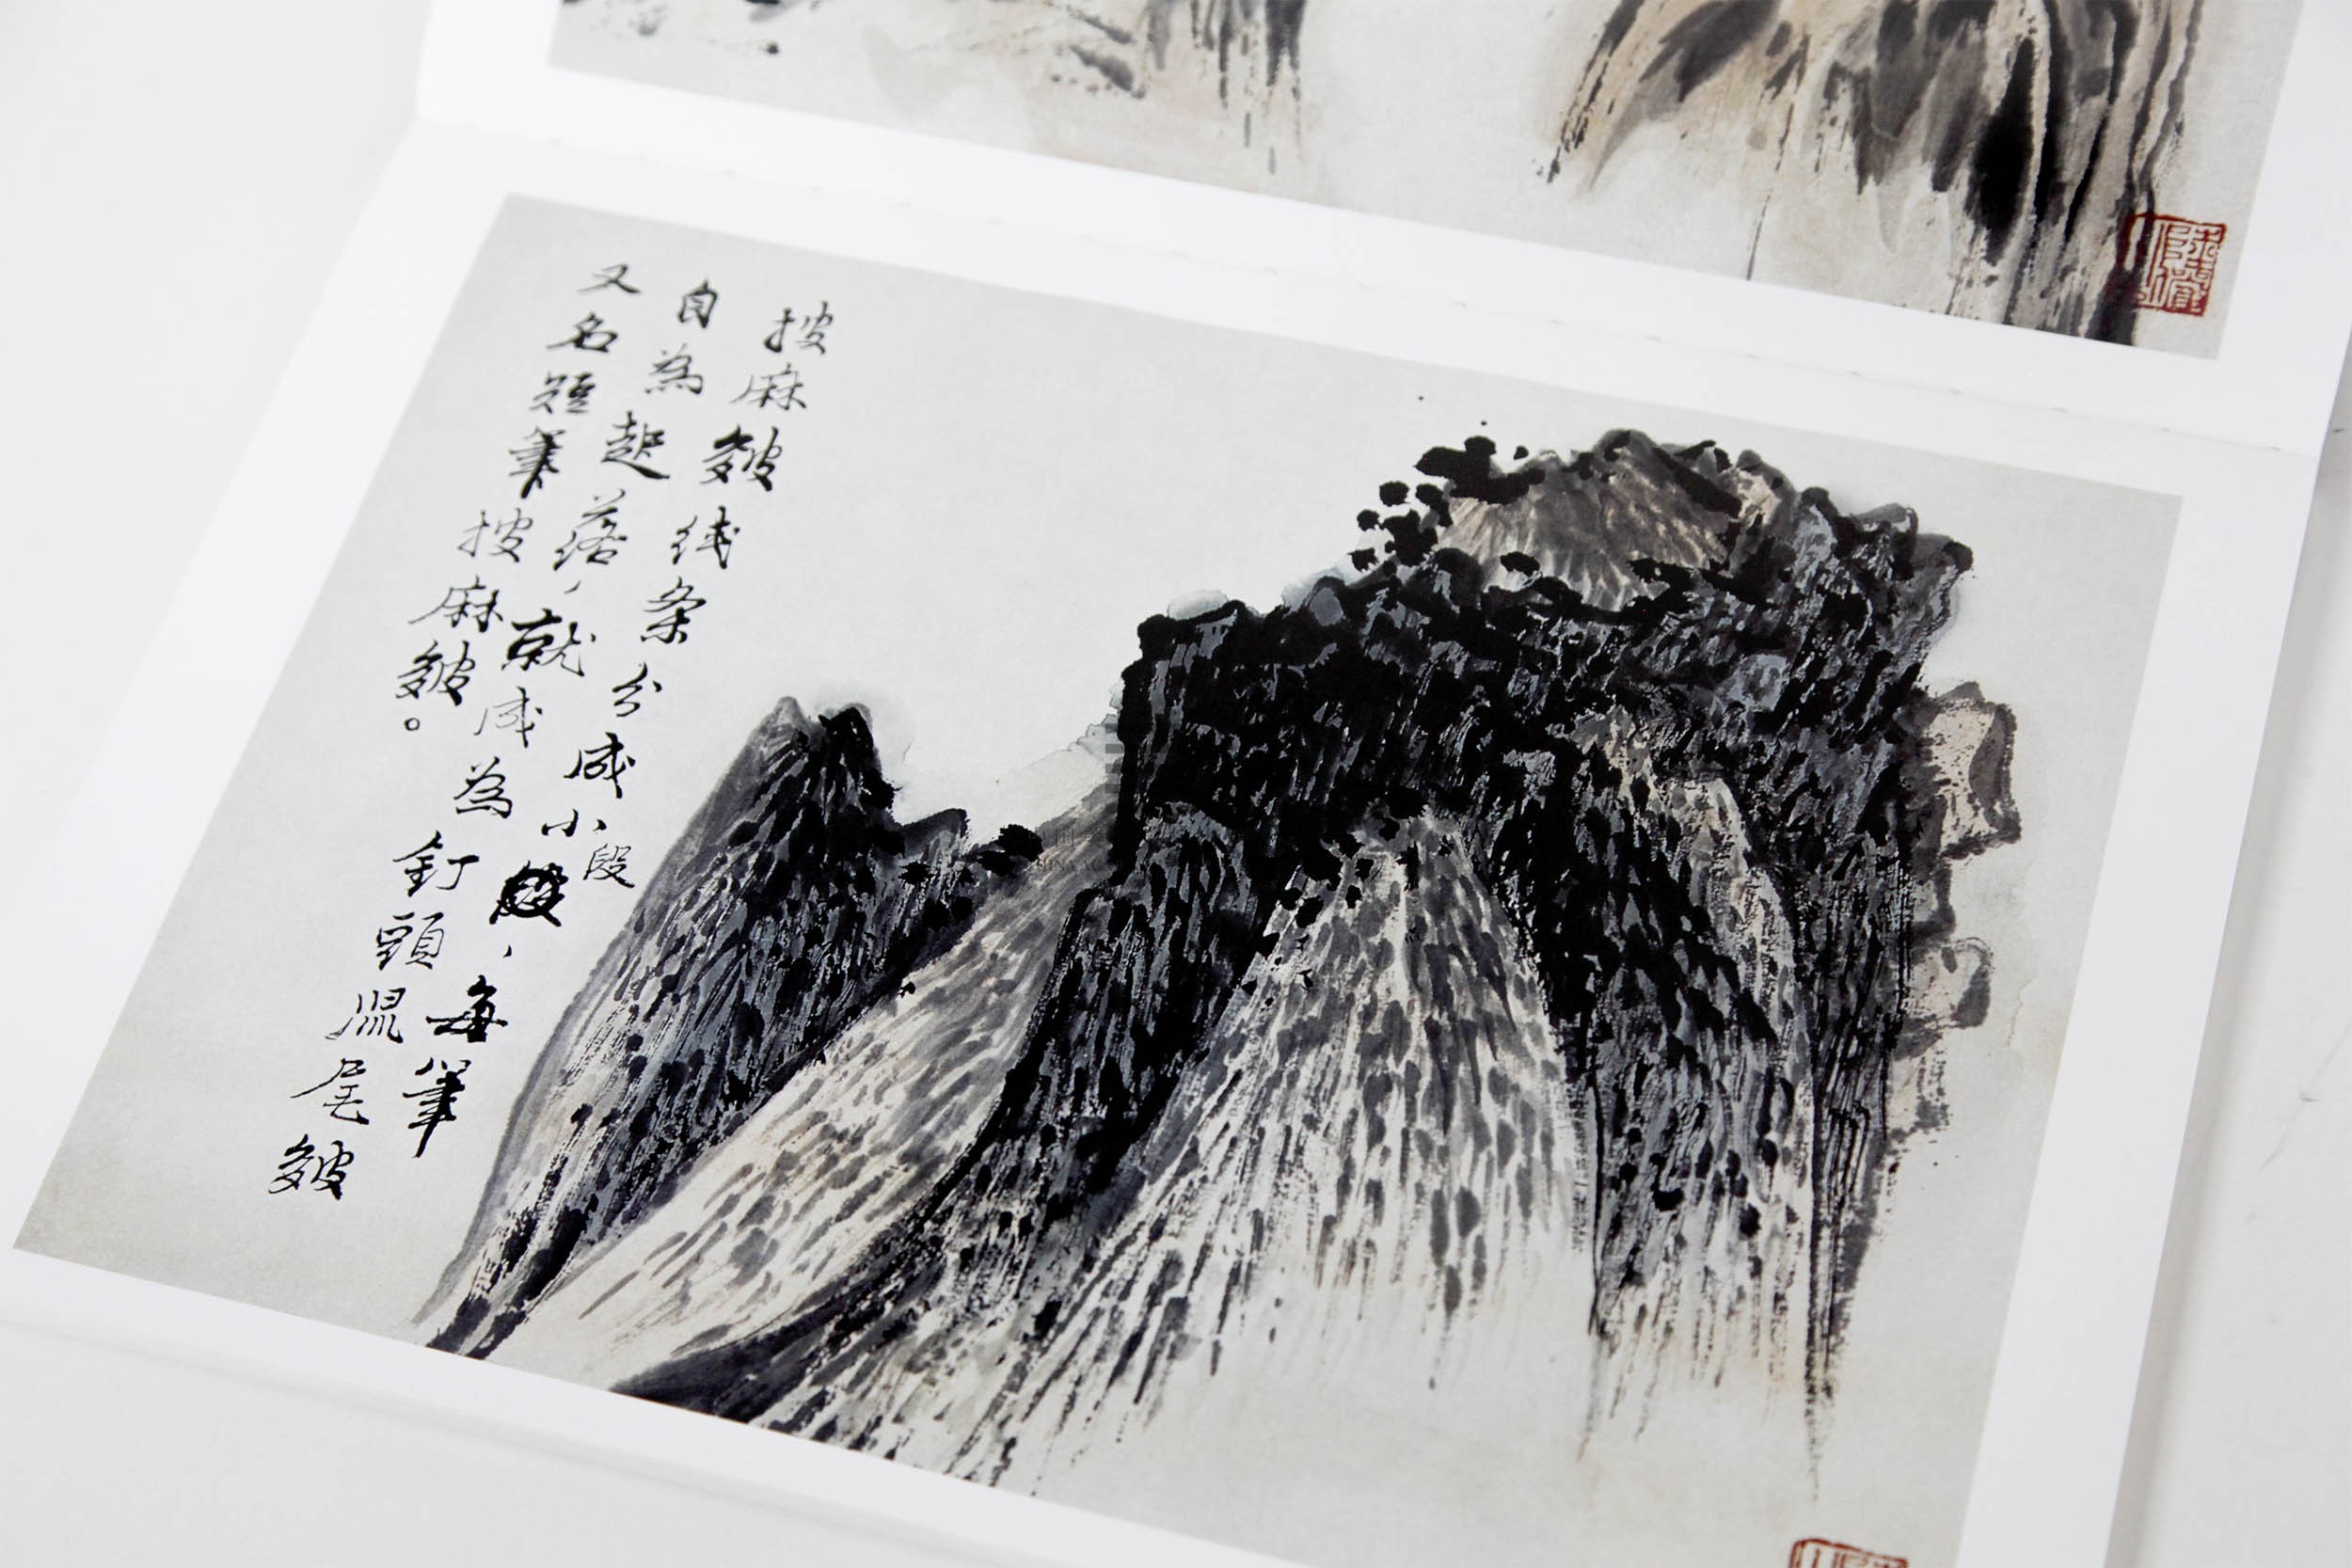 披麻皴线条分成小段，每筆
自為起落，就成為釘頭鼠尾皴
又名短筆披麻皴。